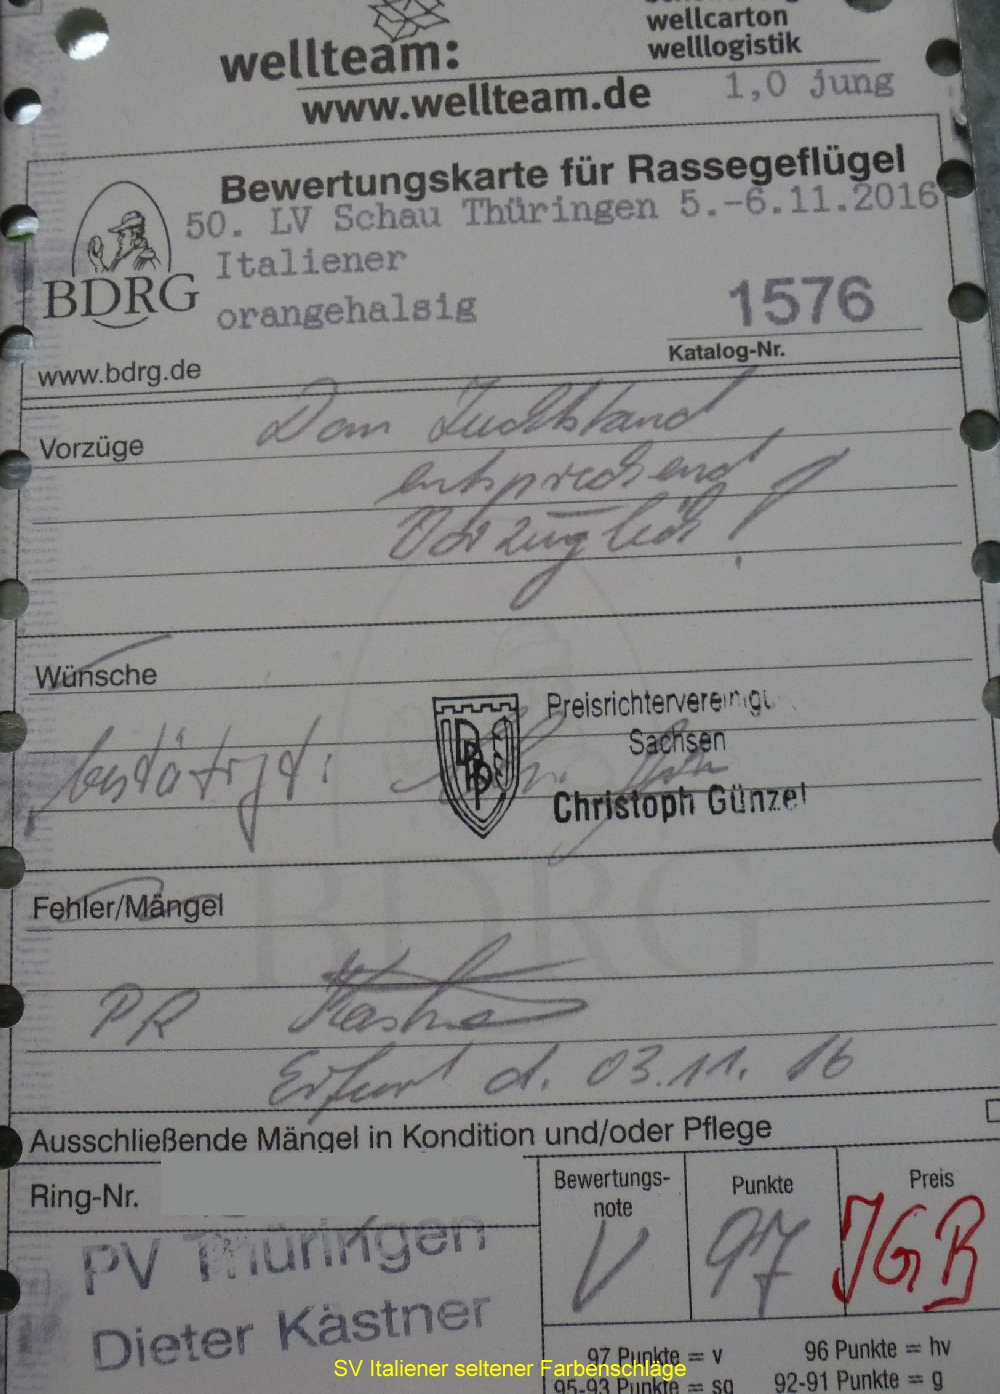 wellteam:
wellcarton
welllogistik
www.wellteam.de
1,0 jung
Bewertungskarte für Rassegeflügel
50. LV Schau Thüringen 5.-6.11.2016
Italiener
orangehalsig
BDRG
1576
Katalog-Nr.
www.bdrg.de
Vorzüge
Dem Zuchtstand
entsprechend
Vorzüglich!
Wünsche
bestätigt:
Preisrichtervereinigu
Sachsen
Christoph Günzel
BDRG
Fehler/Mängel
PR Kästner
Erfurt d. 03.11.16
Ausschließende Mängel in Kondition und/oder Pflege
Ring-Nr.
Bewertungs-
note
Punkte
Preis
V
97
JGB
PV Thüringen
Dieter Kästner
97 Punkte = v
96 Punkte = hv
95-93 Punkte = sg
92-91 Punkte = g
SV Italiener seltener Farbenschläge